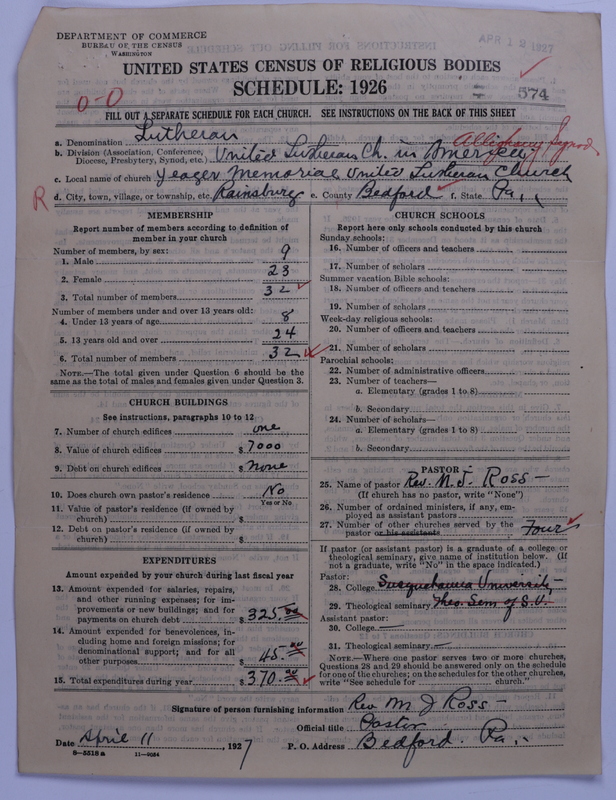 DEPARTMENT OF COMMERCE
BUREAU OF THE CENSUS
WASHINGTON
APR 12 1927
UNITED STATES CENSUS OF RELIGIOUS BODIES
SCHEDULE: 1926
0-0
574
FILL OUT A SEPARATE SCHEDULE FOR EACH CHURCH. SEE INSTRUCTIONS ON THE BACK OF THIS SHEET
a. Denomination Lutheran
Alleghany Synod
b. Division (Association, Conference, Diocese, Presbytery, Synod, etc.) United Lutheran Ch. in America
c. Local name of church Yeager Memorial United Lutheran Church
R
d. City, town, village, or township, etc. Rainsburg e. County Bedford f. State Pa.
MEMBERSHIP
Report number of members according to definition of
member in your church
Number of members, by sex:
1. Male 9
2. Female 23
3. Total number of members 32
Number of members under and over 13 years old:
4. Under 13 years of age 8
5. 13 years old and over 24
6. Total number of members 32
NOTE.—The total given under Question 6 should be
same as the total of males and females given under Question 3.
CHURCH BUILDINGS
See instructions, paragraphs 10 to 12
7. Number of church edifices one
8. Value of church edifices $ 7000
9. Debt on church edifices $ none
10. Does church own pastor's residence No
Yes or No
11. Value of pastor's residence (if owned by
church) $
12. Debt on pastor's residence (if owned by
church) $
EXPENDITURES
Amount expended by your church during last fiscal year
13. Amount expended for salaries, repairs,
and other running expenses; for im-
provements or new buildings; and for
payments on church debt $ 325.00
14. Amount expended for benevolences, in-
cluding home and foreign missions; for
denominational support; and for all
other purposes $ 45.00
15. Total expenditures during year $ 370.00
CHURCH SCHOOLS
Report here only schools conducted by this church
Sunday schools:
16. Number of officers and teachers
17. Number of scholars
Summer vacation Bible schools:
18. Number of officers and teachers
19. Number of scholars
Week-day religious schools:
20. Number of officers and teachers
21. Number of scholars
Parochial schools:
22. Number of administrative officers
23. Number of teachers—
a. Elementary (grades 1 to 8)
b. Secondary
24. Number of scholars—
a. Elementary (grades 1 to 8)
b. Secondary
PASTOR
25. Name of pastor Rev. M. J. Ross
(If church has no pastor, write "None")
26. Number of ordained ministers, if any, em-
ployed as assistant pastors
27. Number of other churches served by the
pastor or his assistants Four
If pastor (or assistant pastor) is a graduate of a college or
theological seminary, give name of institution below. (If
not a graduate, write "No" in the space indicated.)
Pastor:
28. College Susquehanna University
29. Theological seminary Theo. Sem of S.U.
Assistant pastor:
30. College
31. Theological seminary
NOTE.—Where one pastor serves two or more churches,
Questions 28 and 29 should be answered only on the schedule
for one of the churches; on the schedules for the other churches,
write "See schedule for church."
Signature of person furnishing information Rev M J Ross
Official title Pastor
Date April 11, 1927 P. O. Address Bedford. Pa.
8-5518 a 11-9084